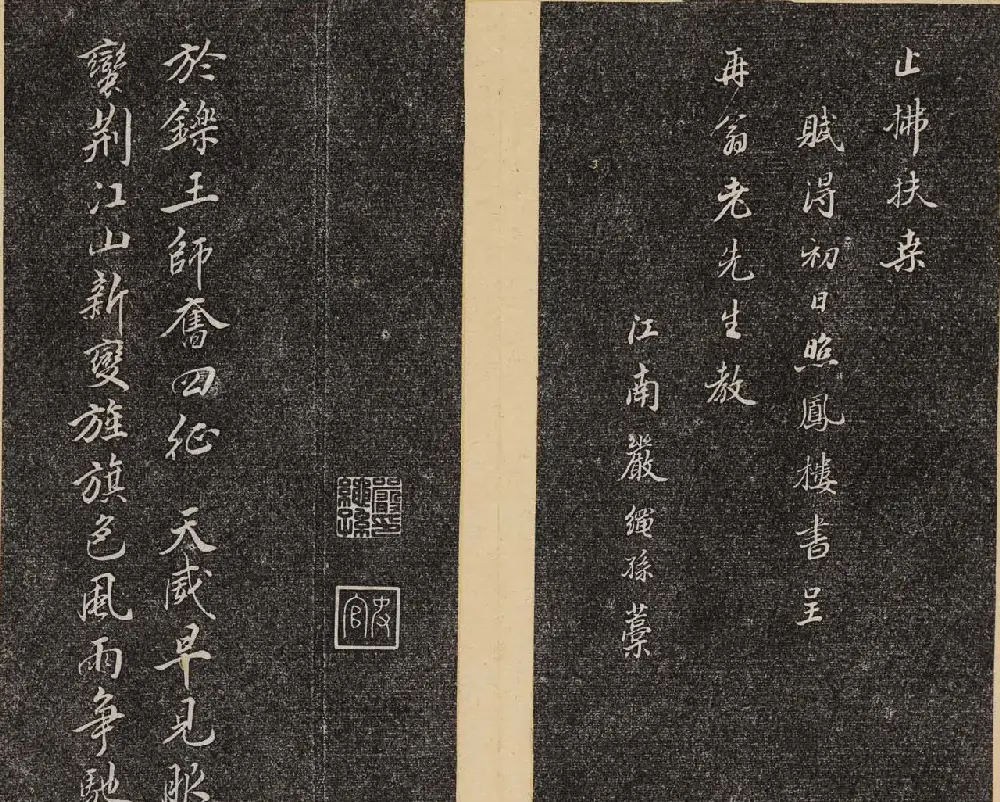 止拂扶桒
賦得初日照鳳樓書呈
再翁老先生教
江南嚴繩孫藁
嚴氏繩孫
史官
於鑠王師奮四征 天威早見服
蠻荊江山新變旌旗色風雨爭馳